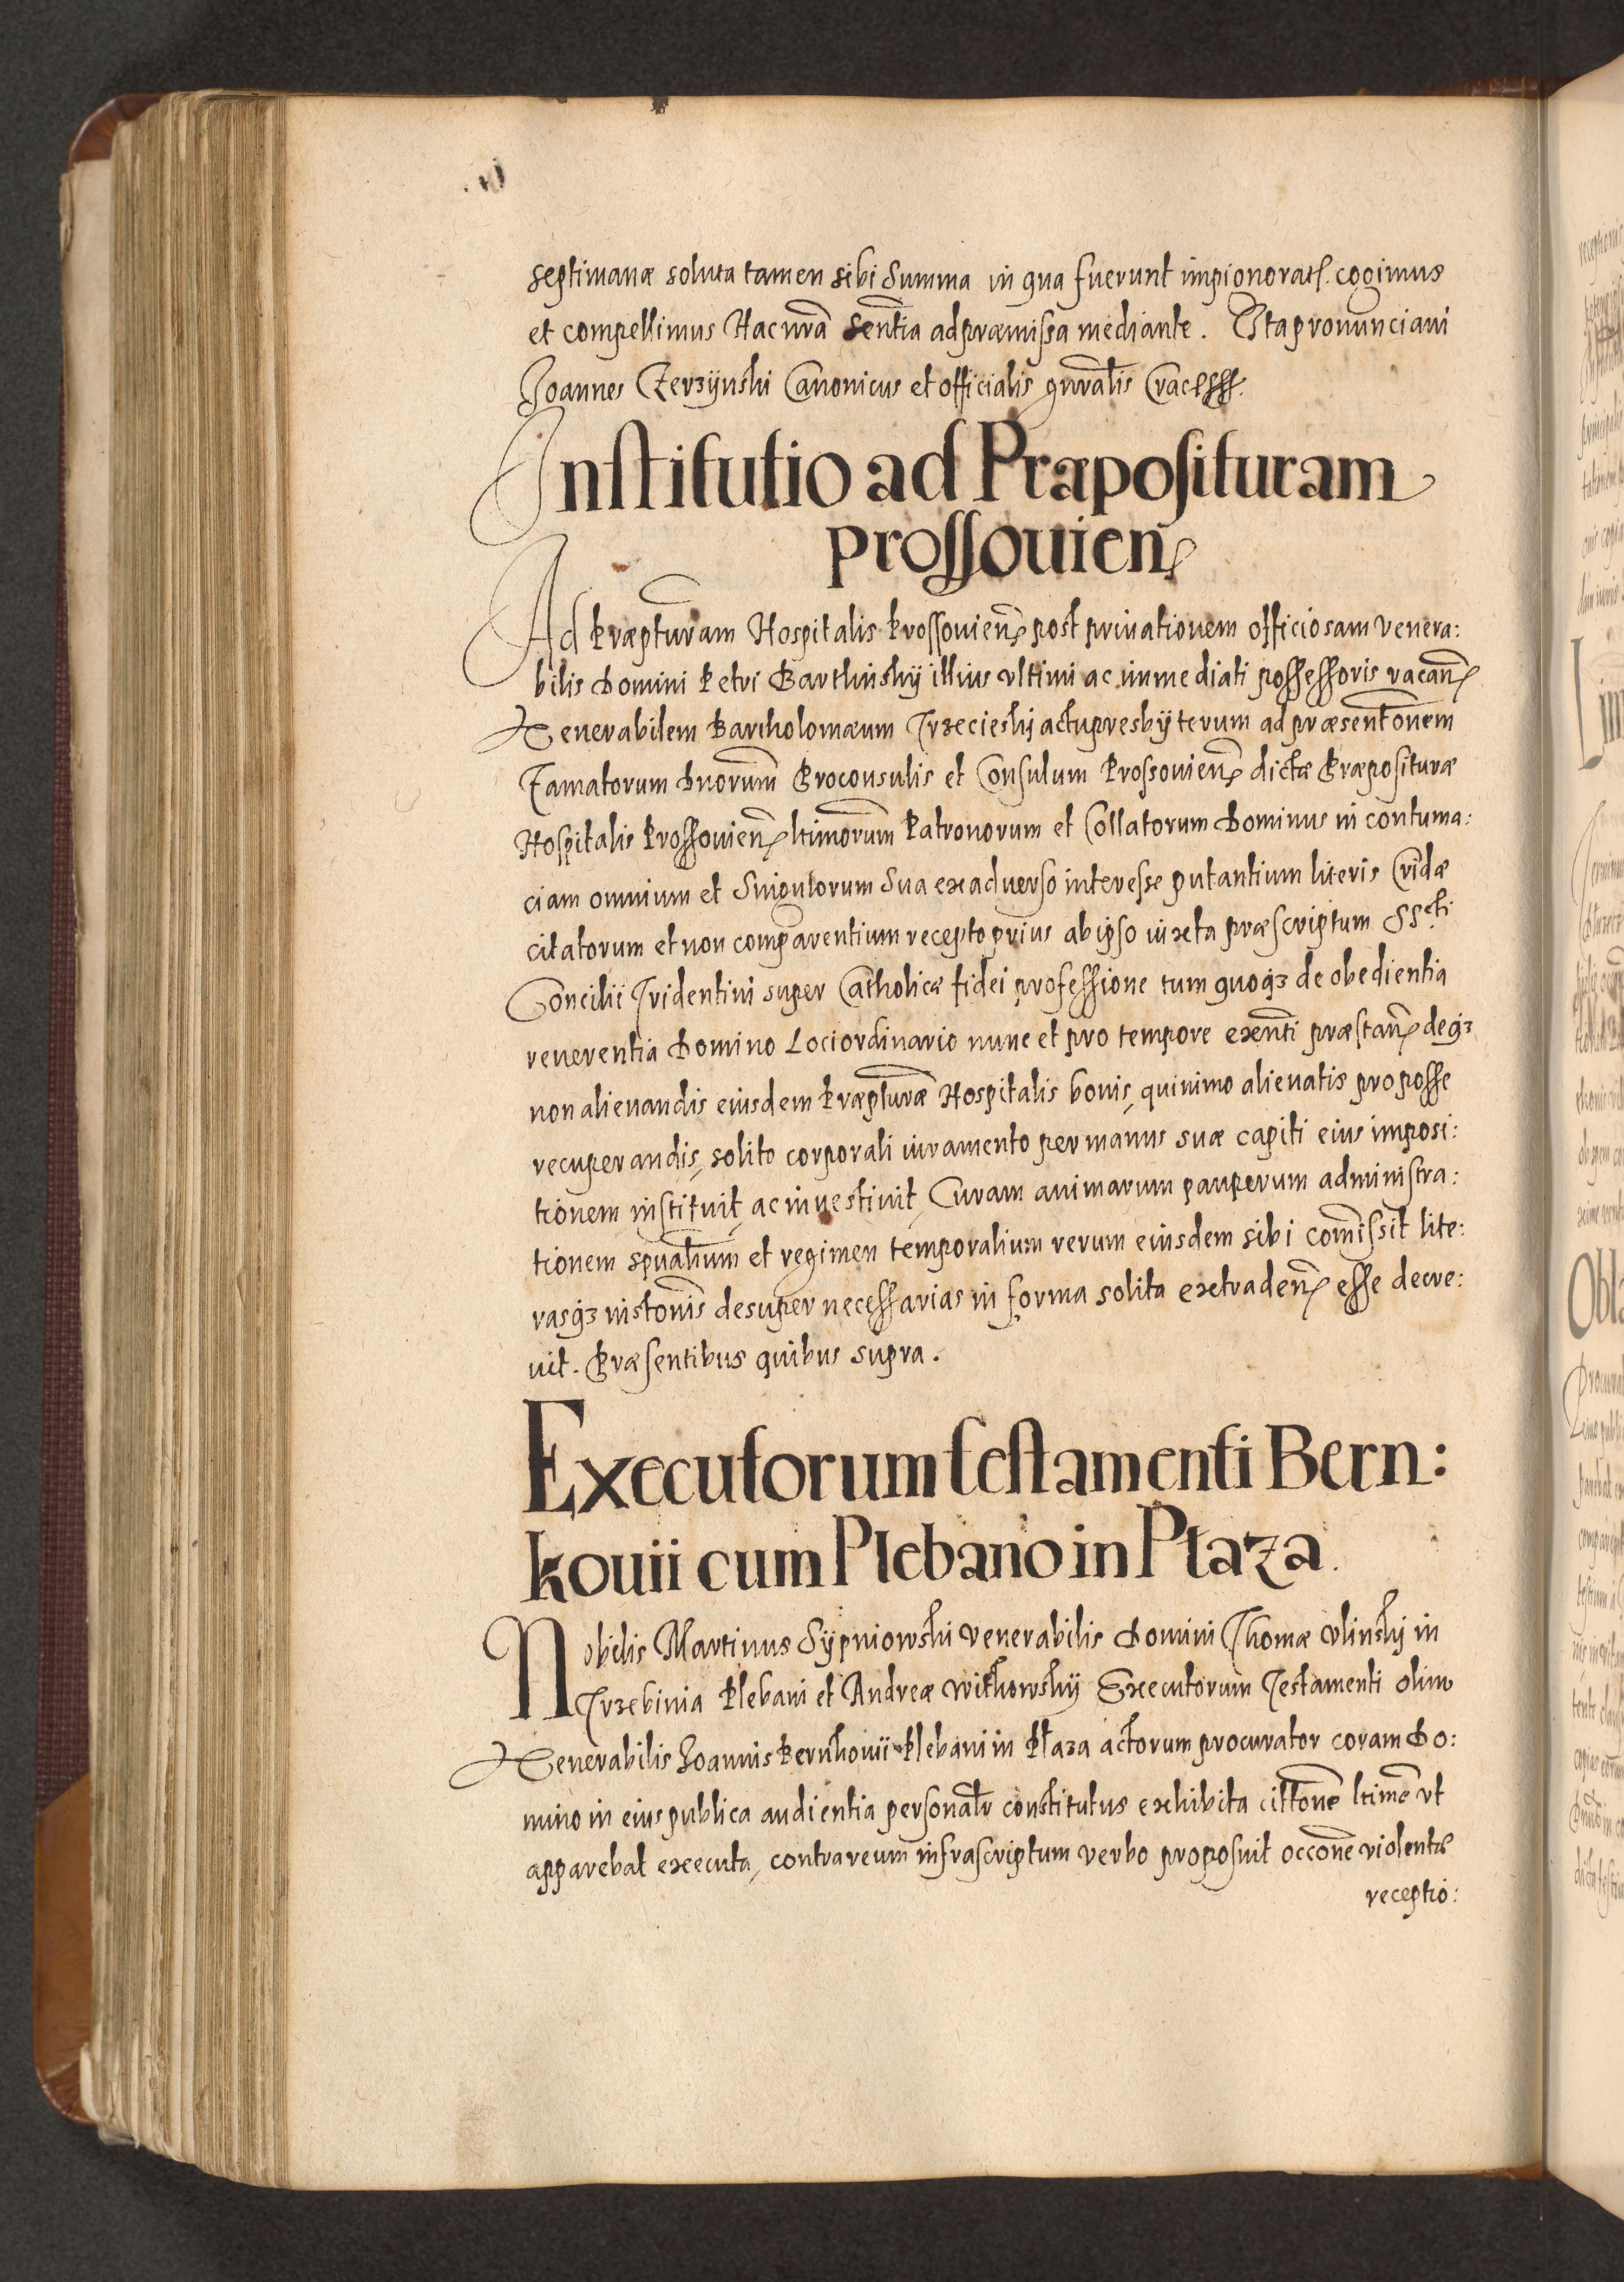 septimanæ soluta tamen sibi Summa in qua fuerunt impignorat. cogimus
et compellimus Hac nrã Sentĩa ad præmissa mediante. Ita pronunciavi
Joannes Canonicus et officialis gnralis
Institutio ad Præposituram
prossouien
Ad Præpturam Hospitalis Prossouien post priuationem officiosam venera:
bilis Domini Petri Barthinsky illius vltimi ac immediati possessoris vacan
Venerabilem Bartholomæum Trzecieski actu presbyterum ad præsentõnem
Famatorum Dnorum Proconsulis et Consulum Prossouien dictæ Præposituræ
Hospitalis Prossouien ltimorum Patronorum et Collatorum Dominus in contuma:
ciam omnium et Singulorum Sua ex aduerso interesse putantium literis Cridæ
citatorum et non comparentium recepto prius ab ipso iuxta præscriptum SS.cti
Concilii Tridentini super Catholicæ fidei professione tum quoq3 de obedientia
reuerentia Domino Loci ordinario nunc et pro tempore exenti præstan deq3
non alienandis eiusdem Præpturæ Hospitalis bonis, quinimo alienatis pro posse
recuperandis, solito corporali iuramento per manus suæ capiti eius imposi:
tionem instituit, ac inuestiuit, Curam animarum pauperum administra:
tionem spualium et regimen temporalium rerum eiusdem sibi comissit lite:
rasq3 instonis desuper necessarias in forma solita extraden esse decre:
uit. Præsentibus quibus supra.
Executorum testamenti Bern:
kouii cum Plebano in Płaza.
Nobilis Martinus Sypniowski venerabilis Domini Thomæ Vlinsky in
Trzebinia Plebani et Andreæ Withowsky Executorum Testamenti olim
Venerabilis Joannis Bernkouii Plebani in Płaza actorum procurator coram Do:
mino in eius publica audientia personalr constitutus exhibita cittone ltime vt
apparebat executa, contra reum infrascriptum verbo proposuit occone violentæ
receptio: